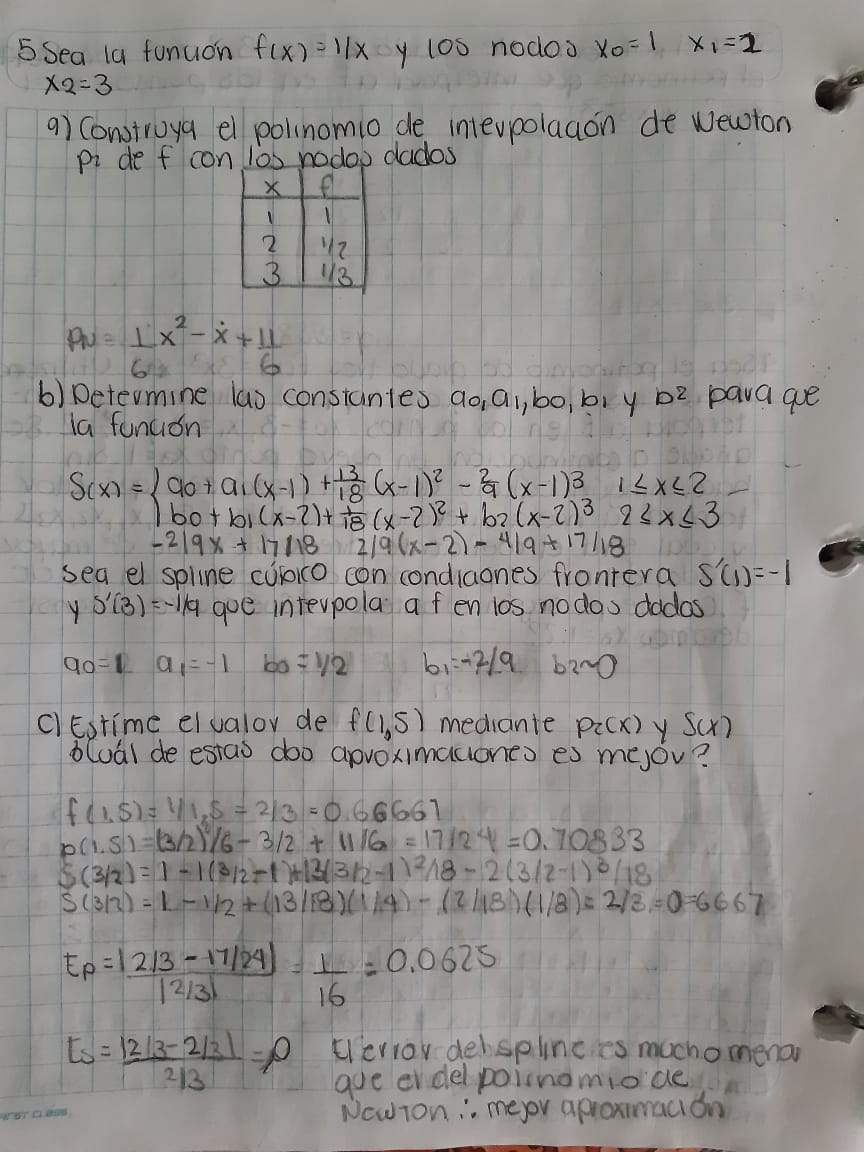 5 Sea la función f(x)=1/x y los nodos x0=1 x1=2
x2=3
a) Construya el polinomio de interpolación de Newton
P2 de f con los nodos dados
x f
1 1
2 1/2
3 1/3
PN= 1/6 x² - x + 11/6
b) Determine las constantes a0, a1, b0, b1 y b2 para que
la función
S(x) = { a0 + a1(x-1) + 13/18 (x-1)² - 2/9 (x-1)³ 1≤x≤2
b0 + b1(x-2) + 1/18 (x-2)² + b2(x-2)³ 2≤x≤3
-2/9x + 17/18 2/9(x-2) - 4/9 + 17/18
sea el spline cúbico con condiciones frontera S'(1)=-1
y S'(3)=-1/9 que interpola a f en los nodos dados
a0=1 a1=-1 b0=1/2 b1=-2/9 b2~0
c) Estime el valor de f(1,5) mediante P2(x) y S(x)
¿Cuál de estas dos aproximaciones es mejor?
f(1,5)=1/1,5 = 2/3 = 0.66667
p(1.5)=(3/2)²/6 - 3/2 + 11/6 = 17/24 = 0.70833
S(3/2) = 1 - 1(3/2-1)+13(3/2-1)²/18 - 2(3/2-1)³/18
S(3/2)= 1 - 1/2 + (13/18)(1/4) - (2/18)(1/8) = 2/3 = 0.6667
Ep = |2/3 - 17/24| / |2/3| = 1/16 = 0.0625
Es = |2/3-2/3| / 2/3 = 0 El error del spline es mucho menor
que el del polinomio de
Newton ∴ mejor aproximación